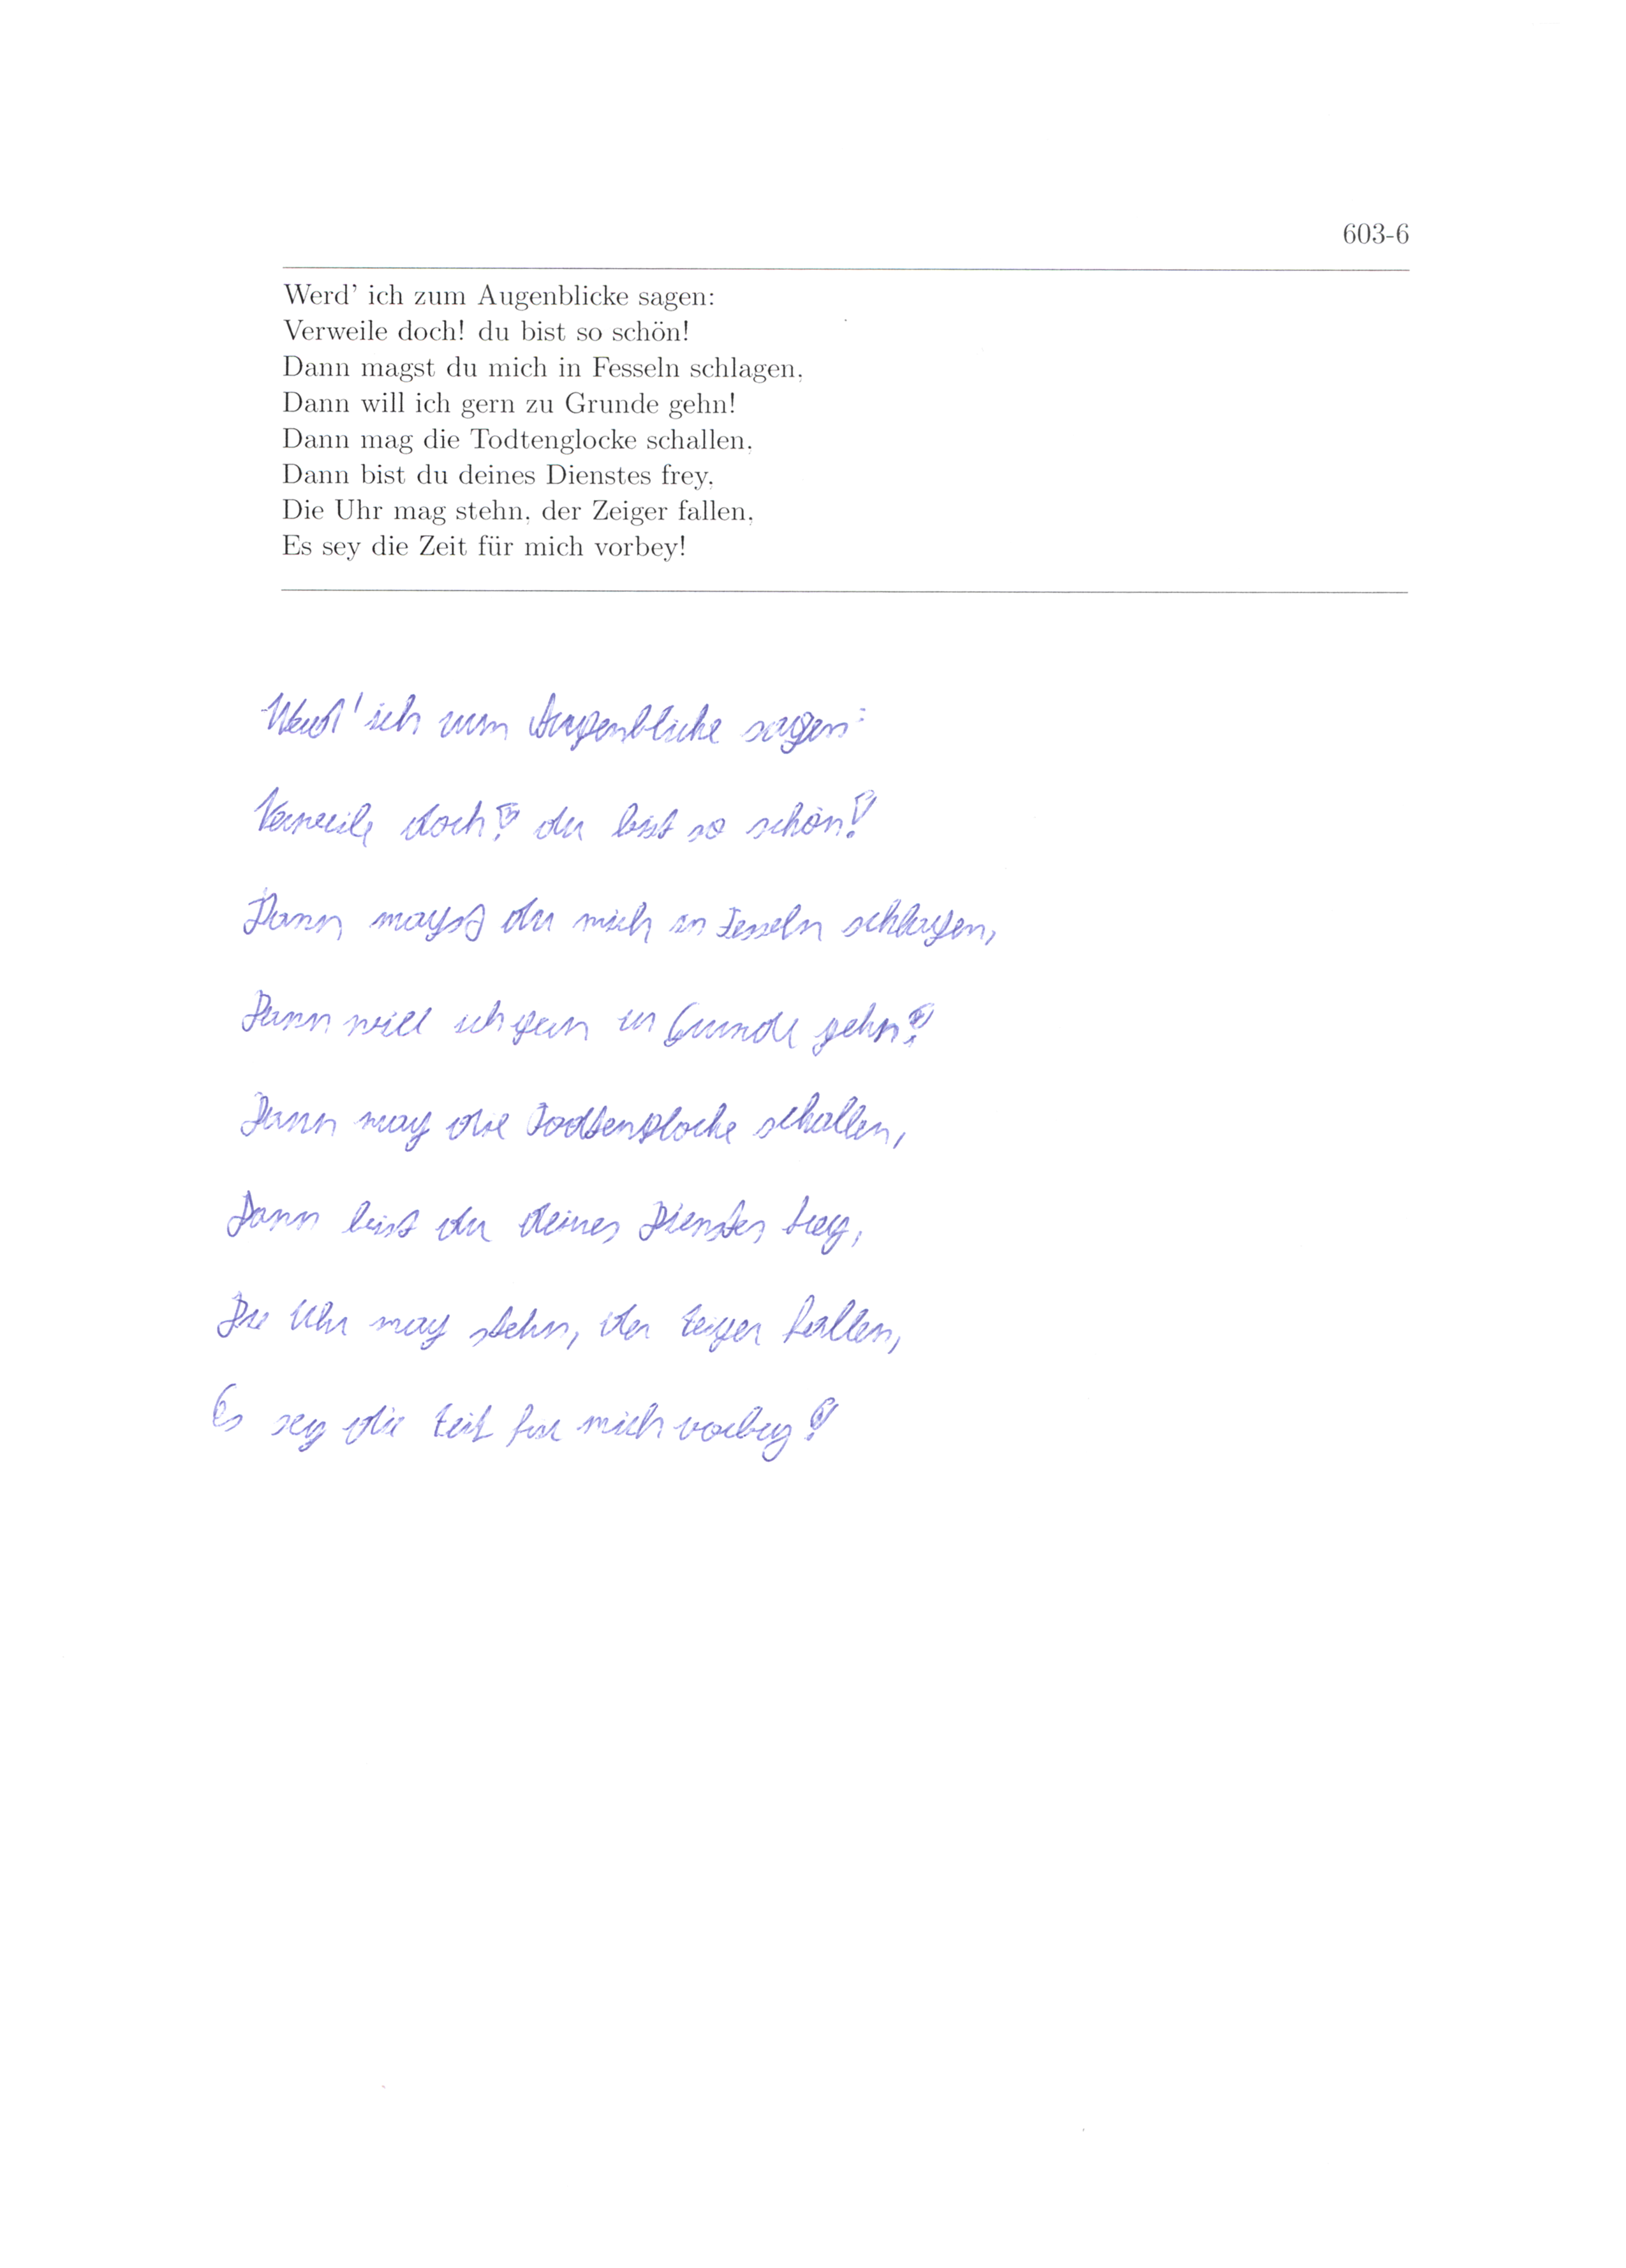 603-6
Werd' ich zum Augenblicke sagen:
Verweile doch! du bist so schön!
Dann magst du mich in Fesseln schlagen,
Dann will ich gern zu Grunde gehn!
Dann mag die Todtenglocke schallen,
Dann bist du deines Dienstes frey,
Die Uhr mag stehn, der Zeiger fallen,
Es sey die Zeit für mich vorbey!
Werd' ich zum Augenblicke sagen:
Verweile doch! du bist so schön!
Dann magst du mich in Fesseln schlagen,
Dann will ich gern zu Grunde gehn!
Dann mag die Todtenglocke schallen,
Dann bist du deines Dienstes frey,
Die Uhr mag stehn, der Zeiger fallen,
Es sey die Zeit für mich vorbey!